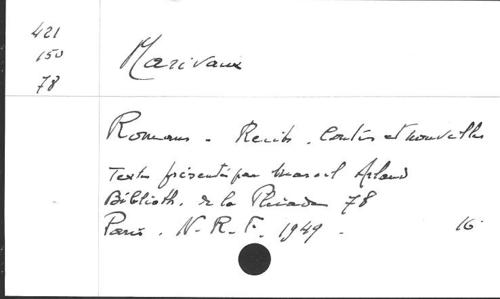 421
150
78
Marivaux
Romans. Récits, Contes et nouvelles
Textes présentés par Marcel Arland
Biblioth. de la Pléiade 78
Paris. N. R. F. 1949. 16